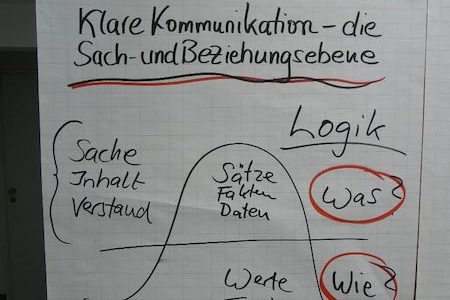 Klare Kommunikation – die
Sach- und Beziehungsebene
Logik
Sache
Inhalt
Verstand
Sätze
Fakten
Daten
Was?
Werte
Wie?